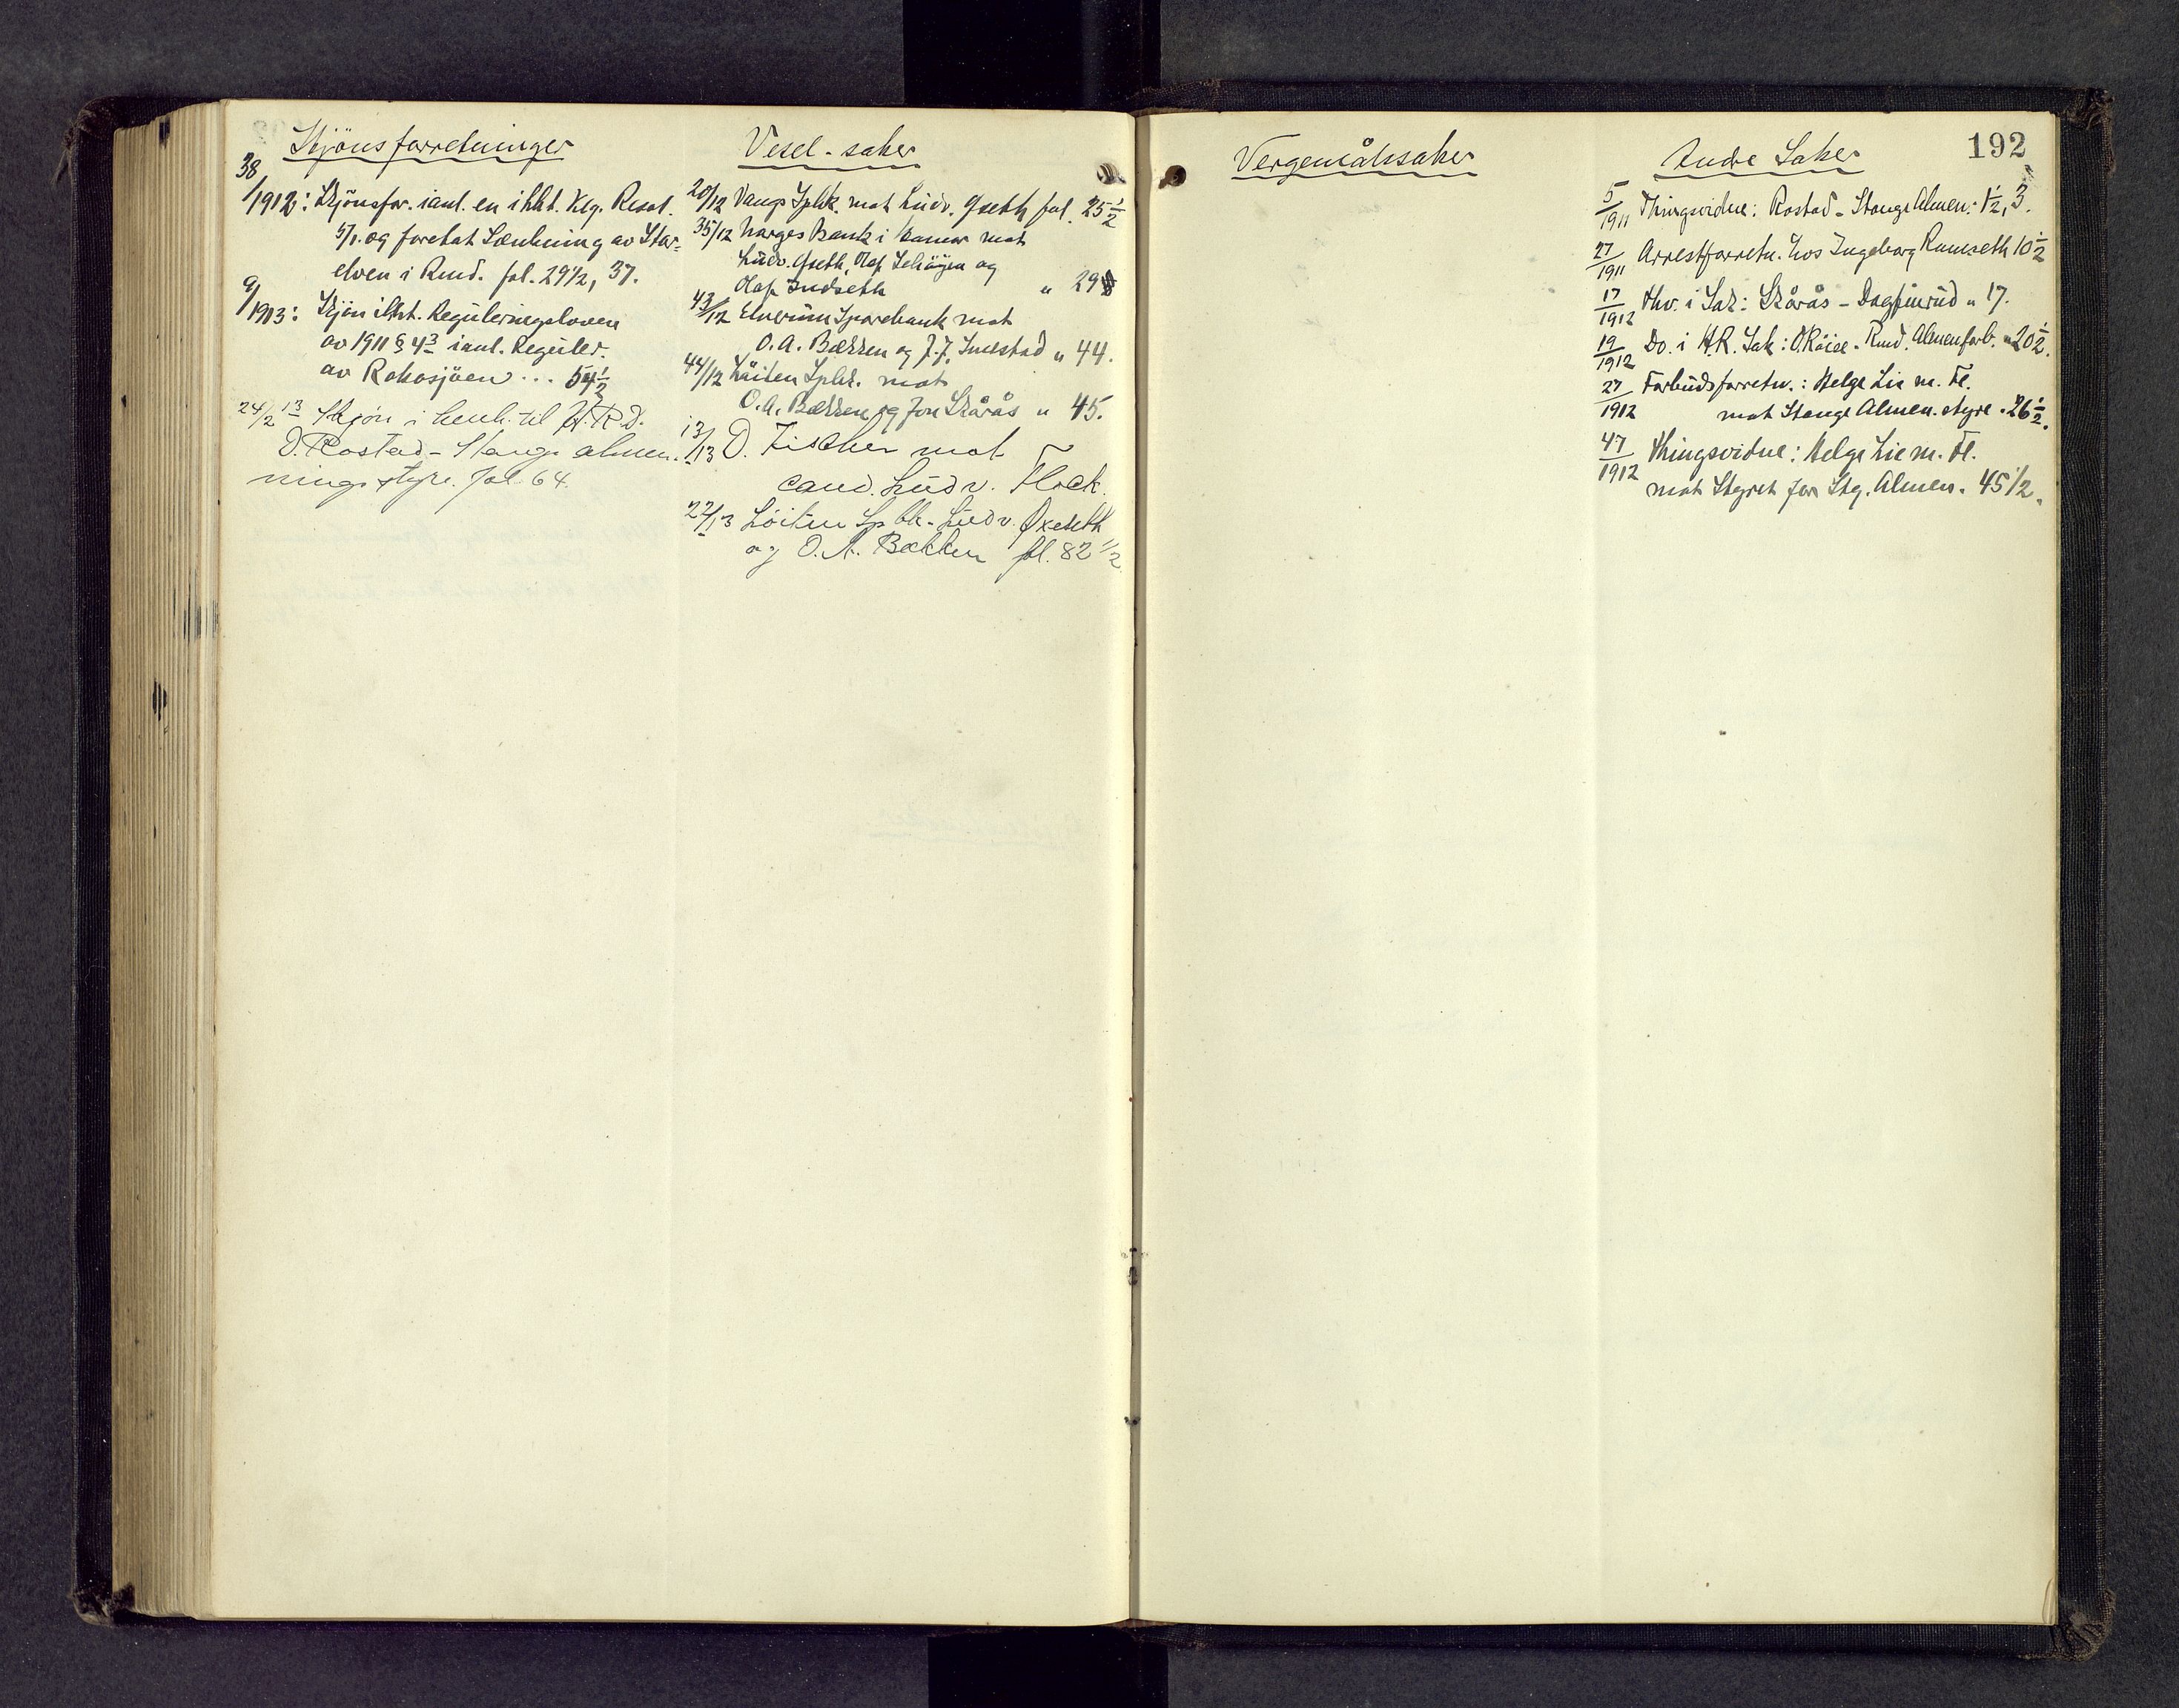 Skjönsforretninger
38/1912: Skjönsfor. i anl. en ihht. Kg. Resol.
5/1. og foretat Sænkning av Star-
elven i Rmd. fol. 29½, 37.
9/1913: Skjön ihht. Reguleringsloven
av 1911 § 43 i anl. Reguler.
av Rokosjöen ... 54½
24/2 13 Skjön i henh. til H.R.D.
O. Rostad - Stange almen-
ningsstyre. fol 64.
Vexel-saker
20/12 Vangs Spbk. mot Ludv. Øseth fol. 25½
35/12 Norges Bank i Hamar mot
Ludv. Øseth, Olaf Schöyen og
Olaf Indseth " 29
43/12 Elverum Sparebank mot
O. A. Bækken og J. J. " 44.
44/12 Löiten Spbk. mot
O. A. Bækken og Jon Skårås " 45.
13/13 D. Fischer mot
cand. Ludv. Flock.
22/13 Löiten Sp bk - Ludv. Øxeseth
og O. A. Bækken fol. 82½
Vergemålssaker
Andre Saker
192
5/1911 Thingsvidne: Rostad - Stange Almen: 1½, 3.
27/1911 Arrestforretn. hos Ingeborg Ramseth 10½
17/1912 Thv. i Sak: Skårås - Dagfinrud " 17.
19/1912 Do. i H.R. Sak: O Röise - Rmd. Almenforb. " 20½.
27/1912 Forbudsforretn.: Helge Lie m. Fl.
mot Stange Almen. styre " 26½.
47/1912 Thingsvidne: Helge Lie m. Fl.
mot Styret for Stg. Almen. 45½.